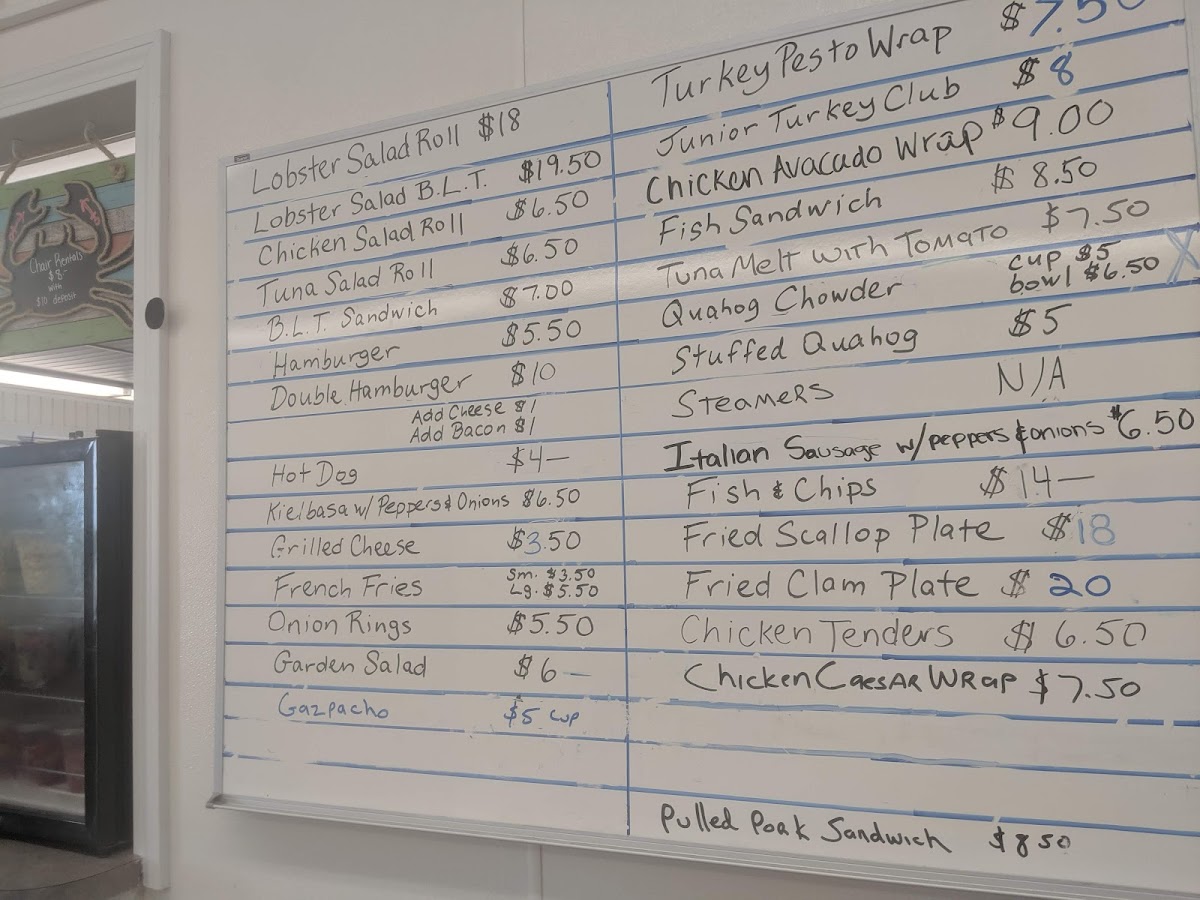 Chair Rentals
$8-
with
$10 deposit
Lobster Salad Roll $18
Lobster Salad B.L.T. $19.50
Chicken Salad Roll $6.50
Tuna Salad Roll $6.50
B.L.T. Sandwich $7.00
Hamburger $5.50
Double Hamburger $10
Add Cheese $1
Add Bacon $1
Hot Dog $4—
Kielbasa w/ Peppers & Onions $6.50
Grilled Cheese $3.50
French Fries Sm. $3.50
Lg. $5.50
Onion Rings $5.50
Garden Salad $6—
Gazpacho $5 cup
Turkey Pesto Wrap $7.50
Junior Turkey Club $8
Chicken Avacado Wrap $9.00
Fish Sandwich $8.50
Tuna Melt with Tomato $7.50
Quahog Chowder cup $5
bowl $6.50
Stuffed Quahog $5
Steamers N/A
Italian Sausage w/peppers & onions $6.50
Fish & Chips $14—
Fried Scallop Plate $18
Fried Clam Plate $20
Chicken Tenders $6.50
Chicken Caesar Wrap $7.50
Pulled Poak Sandwich $8.50